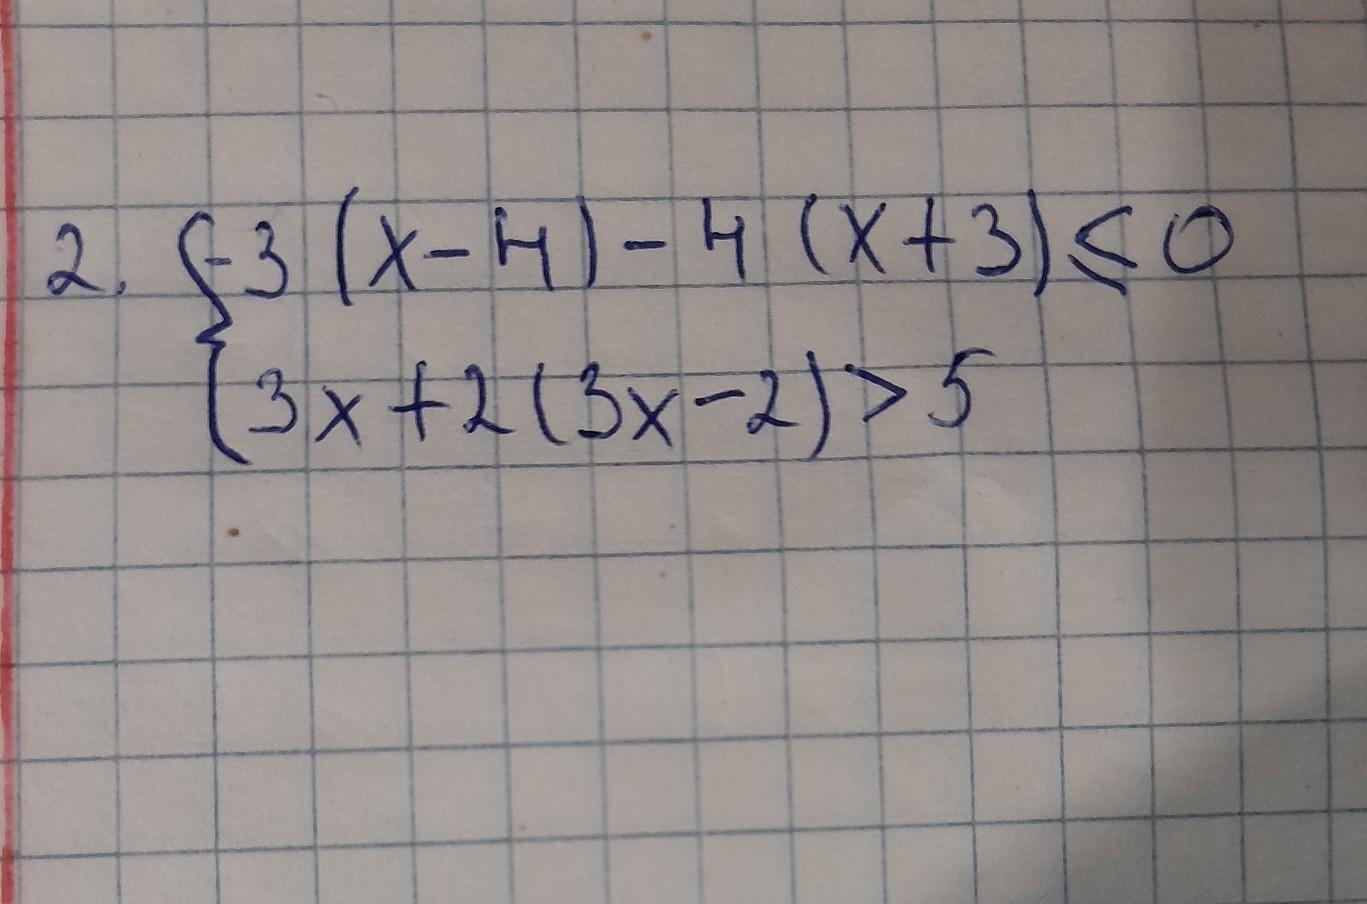 2. { -3 (x - 4) - 4 (x + 3) ⩽ 0
3x + 2 (3x - 2) > 5